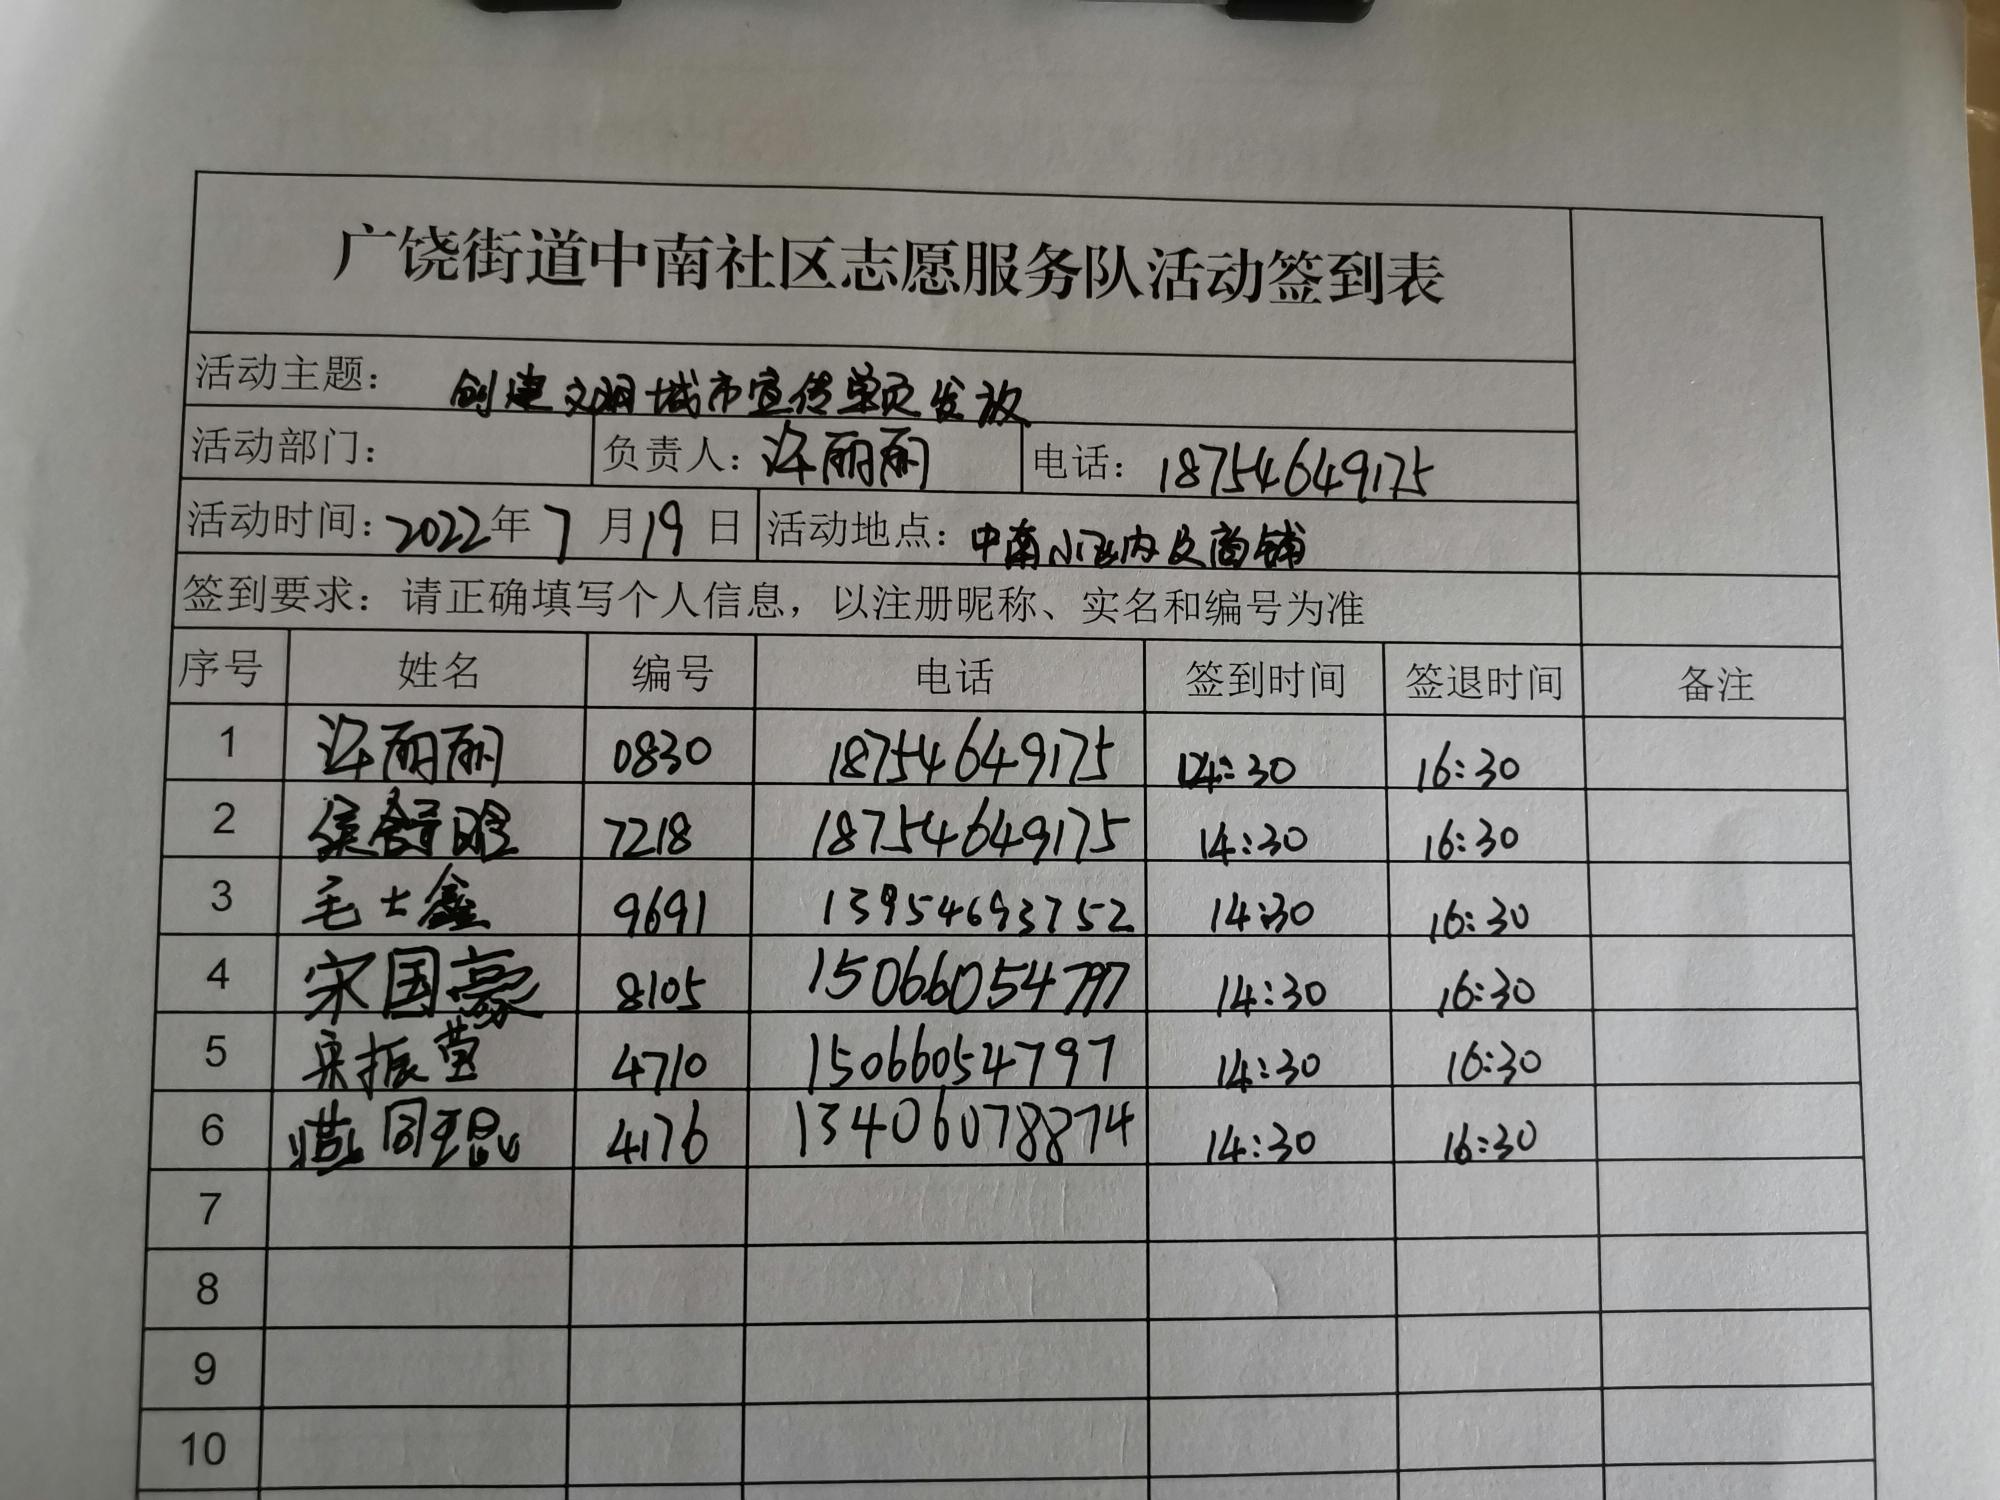 广饶街道中南社区志愿服务队活动签到表
活动主题： 创建文明城市宣传单页发放
活动部门： 负责人：许丽丽 电话：18754649175
活动时间：2022年7月19日 活动地点：中南小区内及商铺
签到要求：请正确填写个人信息，以注册昵称、实名和编号为准
序号 姓名 编号 电话 签到时间 签退时间 备注
1 许丽丽 0830 18754649175 14:30 16:30
2 侯舒晗 7218 18754649175 14:30 16:30
3 毛士鑫 9691 13954693752 14:30 16:30
4 宋国豪 8105 15066054797 14:30 16:30
5 宋振莹 4710 15066054797 14:30 16:30
6 4176 13406078874 14:30 16:30
7
8
9
10